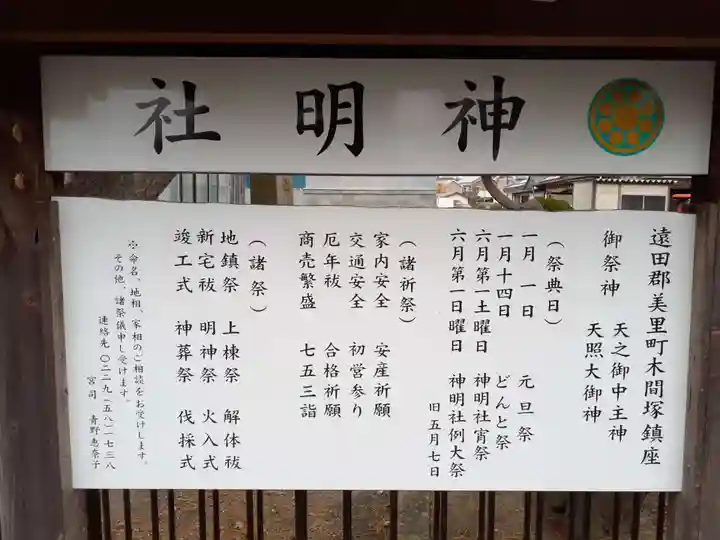 神明社
遠田郡美里町木間塚鎮座
御祭神　天之御中主神
天照大御神
（祭典日）
一月　一日　元旦祭
一月十四日　どんと祭
六月第一土曜日　神明社宵祭
六月第一日曜日　神明社例大祭
旧五月七日
（諸祈祭）
家内安全　安産祈願
交通安全　初営参り
厄年祓　合格祈願
商売繁盛　七五三詣
（諸祭）
地鎮祭　上棟祭　解体祓
新宅祓　明神祭　火入式
竣工式　神葬祭　伐採式
※命名、地相、家相のご相談をお受けします。
その他、諸祭儀申し受けます。
連絡先　〇二二九（五八）一七三八
宮司　青野恵奈子